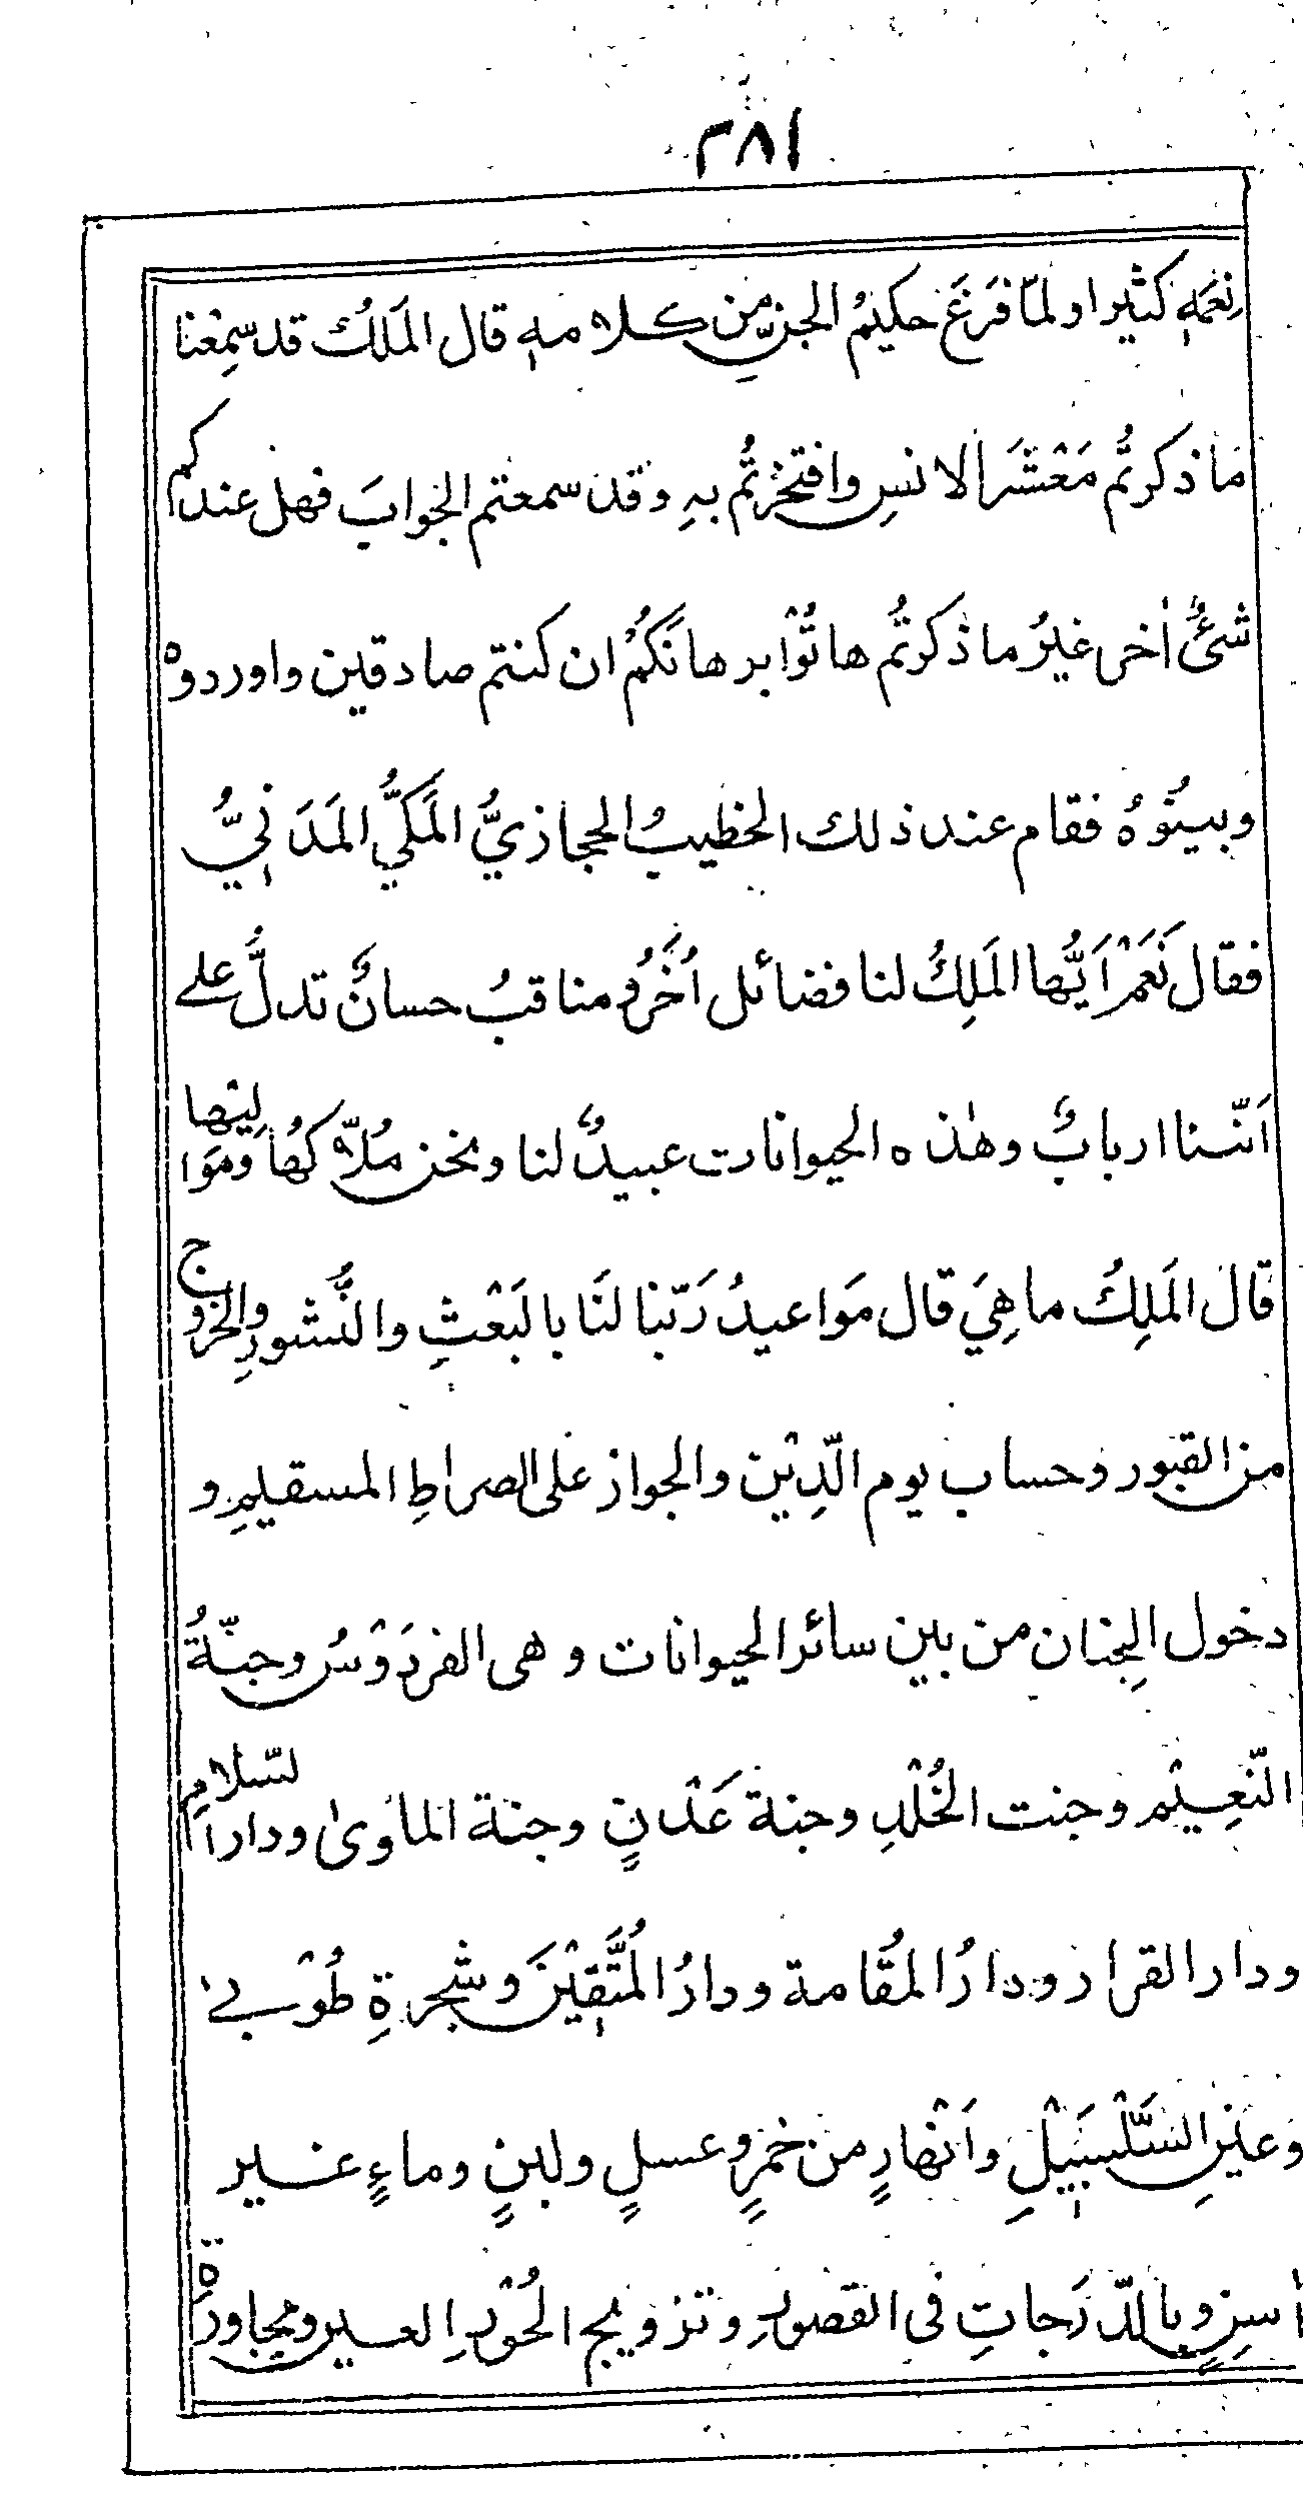 ٢٨١
نِعَمِهٖ كثيرا ولمّا فَرَغَ حكيمُ الجنِّ مِن كلامهٖ قال المَلَكُ قد سمِعْنا
ما ذكرتُم مَعْشَرَ الانسِ وافتخَرْتُم بهِ وقد سمعتم الجوابَ فهل عندكم
شئٌ اٰخر غيرُ ما ذكرتُم هاتُوْا برهانَكُمْ ان كنتم صادقين واوردوه
وبيِّنُوْهُ فقام عند ذلك الخطيبُ الحجازيُّ المَكِّيُّ المَدَنِيُّ
فقال نَعَمْ اَيُّها المَلِكُ لنا فضائل اُخَرُ ومناقبُ حسانٌ تدلُّ على
اَنّنا اربابٌ وهٰذه الحيوانات عبيدٌ لنا ونحن مُلّاكُها ومَوَالِيْها
قال المَلِكُ ما هِيَ قال مَواعيدُ رَبّنا لنَا بالبَعْثِ والنُّشورِ والخرُوج
من القبور وحساب يوم الدِّيْن والجواز على الصراطِ المسقليمِ و
دخول الجِنان من بين سائر الحيوانات وهى الفردَوْسُ وجنّةُ
النّعِيْم وجنت الخُلْدِ وجنة عَدْنٍ وجنة الماوىٰ ودار السّلامِ
ودار القرار ودارُ المُقَامة ودارُ المُتَّقِيْنَ وشجرةِ طُوْبى
وعَيْنِ السَّلْسَبِيْلِ واَنْهارٍ من خمرٍ وعسلٍ ولبنٍ وماءٍ غير
اٰسِنٍ وبالدّرَجاتِ فى القصورِ وتزويج الحُوْرِ العين ومجاورةِ